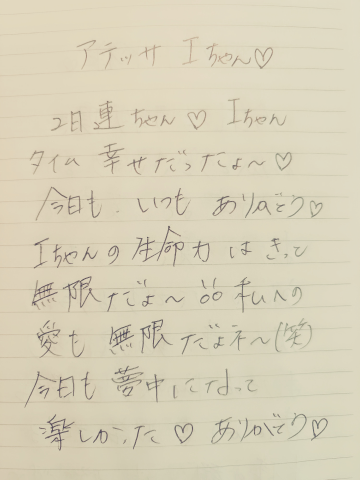 アテッサ Iちゃん♡
2日連ちゃん♡ Iちゃん
タイム 幸せだったよ〜♡
今日も、いつも ありがとう♡
Iちゃんの生命力はきって
無限だよ〜 私への
愛も 無限だよネ〜(笑)
今日も 夢中になって
楽しかった♡ ありがとう♡